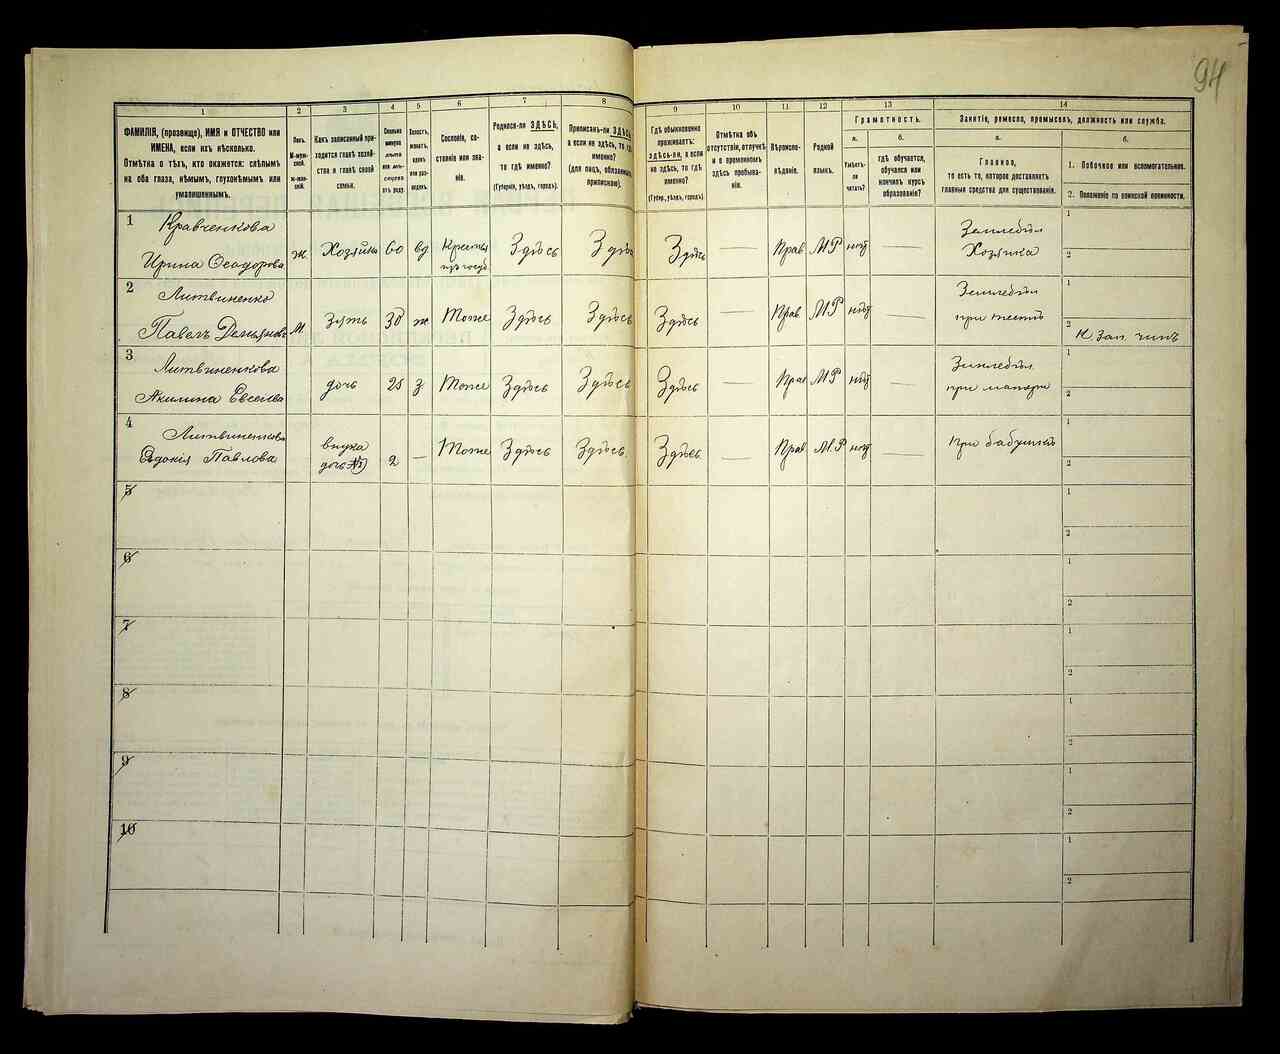 94
1 2 3 4 5 6 7 8 9 10 11 12 13 14
ФАМИЛІЯ, (прозвище), ИМЯ и ОТЧЕСТВО или
ИМЕНА, если ихъ нѣсколько.
Отмѣтка о тѣхъ, кто окажется: слѣпымъ
на оба глаза, нѣмымъ, глухонѣмымъ или
умалишеннымъ.
Полъ.
М-муж-
ской.
ж-жен-
скій.
Какъ записанный при-
ходится главѣ хозяй-
ства и главѣ своей
семьи.
Сколько
минуло
лѣтъ
или мѣ-
сяцевъ
отъ роду.
Холостъ,
женатъ,
вдовъ
или раз-
веденъ.
Сословіе, со-
стояніе или зва-
ніе.
Родился-ли ЗДѢСЬ,
а если не здѣсь,
то гдѣ именно?
(Губернія, уѣздъ, городъ).
Приписанъ-ли ЗДѢСЬ
а если не здѣсь, то гдѣ
именно?
(для лицъ, обязанныхъ
припискою).
Гдѣ обыкновенно
проживаетъ:
здѣсь-ли, а если
не здѣсь, то гдѣ
именно?
(Губер., уѣздъ, городъ)
Отмѣтка объ
отсутствіи, отлучкѣ
и о временномъ
здѣсь пребыва-
ніи.
Вѣроиспо-
вѣданіе.
Родной
языкъ.
Грамотность.
а. б.
Умѣетъ-
ли
читать?
гдѣ обучается,
обучался или
кончилъ курсъ
образованія?
Занятіе, ремесло, промыселъ, должность или служба.
а. б.
Главное,
то есть то, которое доставляетъ
главныя средства для существованія.
1. Побочное или вспомогательное.
2. Положеніе по воинской повинности.
1 Кравченкова
Ирина Ѳеодорова ж Хозяйка 60 вд Кресть Здѣсь Здѣсь Здѣсь — Прав М.Р нѣт Земледѣл
Хозяйка
1
2
2 Литвиненко
Павелъ Демьяновъ м Зять 30 ж Тоже Здѣсь Здѣсь Здѣсь — Прав М.Р нѣт — Земледѣл
при тестѣ
1
2
3 Литвиненкова
Акилина Евсеева дочь 25 з Тоже Здѣсь Здѣсь Здѣсь — Прав М.Р нѣт — Земледѣл
при матери
1
2
4 Литвиненкова
Евдокія Павлова внука
дочь №2) 2 — Тоже Здѣсь Здѣсь. Здѣсь — Прав М.Р нѣт — При бабушкѣ
1
2
5 1
2
6 1
2
7 1
2
8 1
2
9 1
2
10 1
2